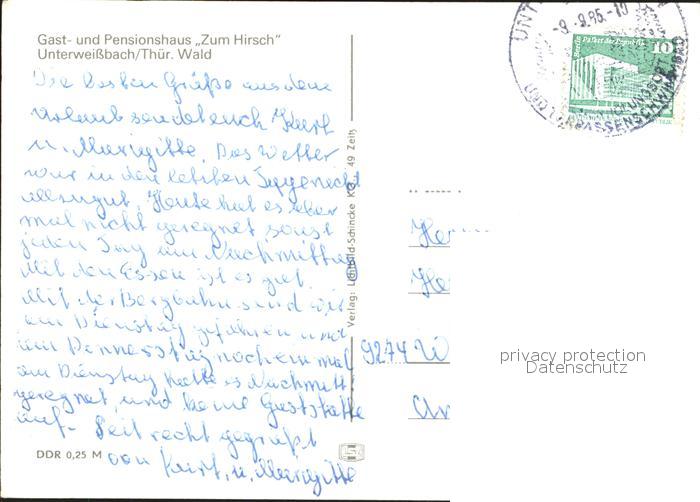 Gast- und Pensionshaus „Zum Hirsch"
Unterweißbach/Thür. Wald
Die besten Grüße aus dem
Urlaub sendet euch Kurt
u. Marigitte. Das Wetter
war in den letzten Tagen nicht
allzugut. Heute hat es aber
mal nicht geregnet sonst
jeden Tag am Nachmittag
Mit den Essen ist es gut.
Mit der Bergbahn sind wir
am Dienstag gefahren und
am Donnerstag noch einmal
am Dienstag hatte es Nachmitt.
geregnet, und keine Gaststätte
auf. Seit recht gegrüßt
von Kurt, u. Marigitte
DDR 0,25 M
Verlag: Lichtbild-Schincke KG, 49 Zeitz
9.9.85.-10
Berlin Palast der Republik
10
DDR
He
He
9274 W
privacy protection
Datenschutz